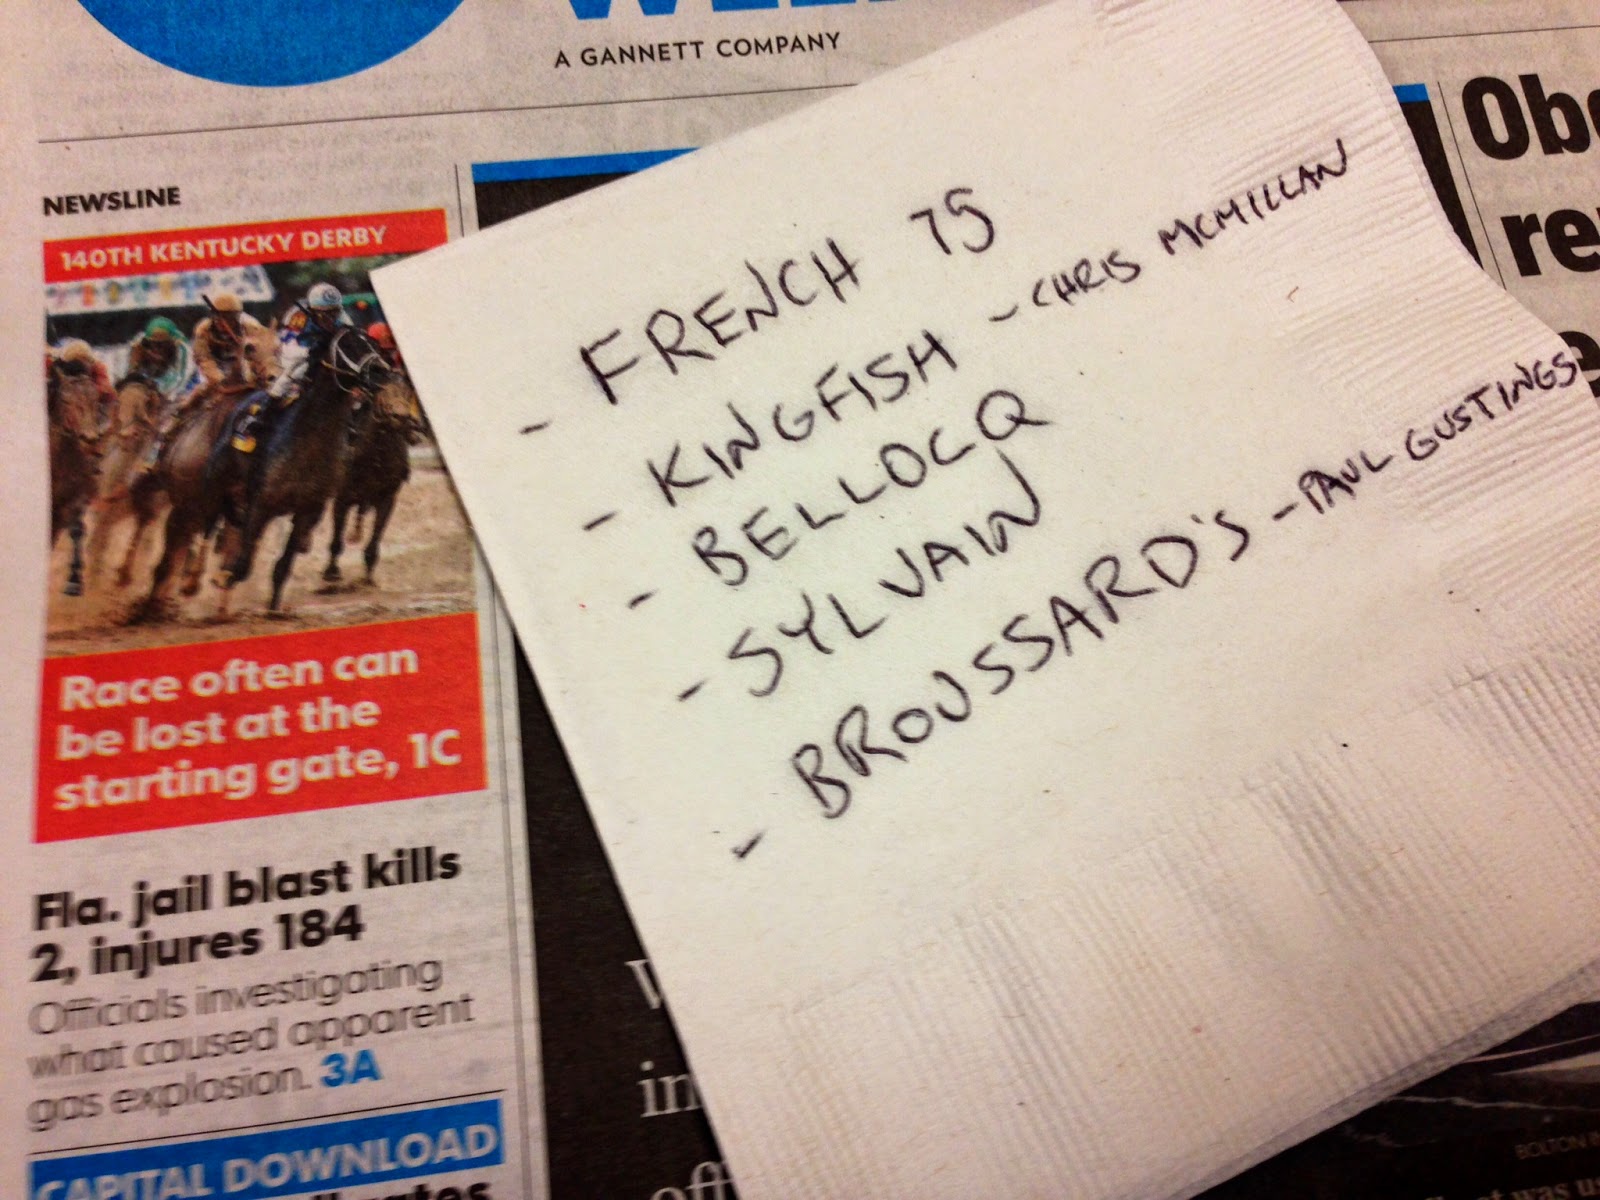 A GANNETT COMPANY
NEWSLINE
140TH KENTUCKY DERBY
Race often can
be lost at the
starting gate, 1C
Fla. jail blast kills
2, injures 184
Officials investigating
what caused apparent
gas explosion. 3A
CAPITAL DOWNLOAD
- FRENCH 75
- KINGFISH - CHRIS MCMILLAN
- BELLOCQ
- SYLVAIN
- BROUSSARD'S - PAUL GUSTINGS